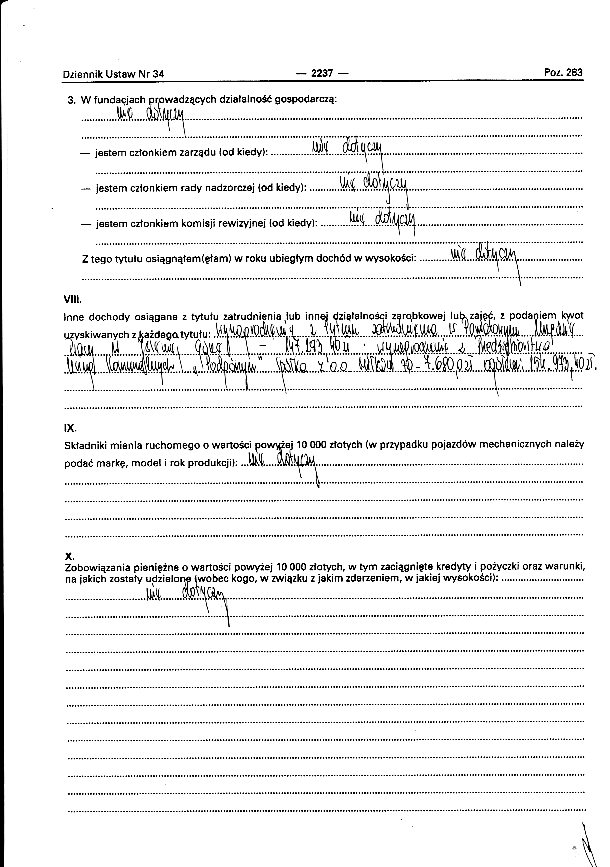 Dziennik Ustaw Nr 34 — 2237 — Poz. 283
3. W fundacjach prowadzących działalność gospodarczą:
nie dotyczy
— jestem członkiem zarządu (od kiedy): nie dotyczy
— jestem członkiem rady nadzorczej (od kiedy): nie dotyczy
— jestem członkiem komisji rewizyjnej (od kiedy): nie dotyczy
Z tego tytułu osiągnąłem(ęłam) w roku ubiegłym dochód w wysokości: nie dotyczy
VIII.
Inne dochody osiągane z tytułu zatrudnienia lub innej działalności zarobkowej lub zajęć, z podaniem kwot
uzyskiwanych z każdego tytułu: wynagrodzenie z tytułu zatrudnienia w Powiatowym Urzędzie
Pracy w Jeleniej Górze - 147.293,40 zł wynagrodzenie z Przedsiębiorstwa
Usług Komunalnych Spółka z o.o. - 7.680,0 zł 154.973,40 zł.
IX.
Składniki mienia ruchomego o wartości powyżej 10 000 złotych (w przypadku pojazdów mechanicznych należy
podać markę, model i rok produkcji): nie dotyczy
X.
Zobowiązania pieniężne o wartości powyżej 10 000 złotych, w tym zaciągnięte kredyty i pożyczki oraz warunki,
na jakich zostały udzielone (wobec kogo, w związku z jakim zdarzeniem, w jakiej wysokości):
nie dotyczy